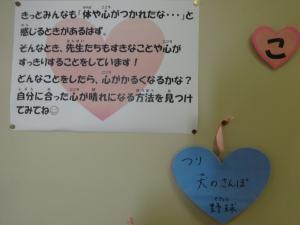 きっとみんなも「体や心がつかれたな・・・」と
感じるときがあるはず。
そんなとき、先生たちもすきなことや心が
すっきりすることをしています！
どんなことをしたら、心がかるくなるかな？
自分に合った心が晴れになる方法を見つけ
てみてね☺
こ
つり
犬のさんぽ
野球